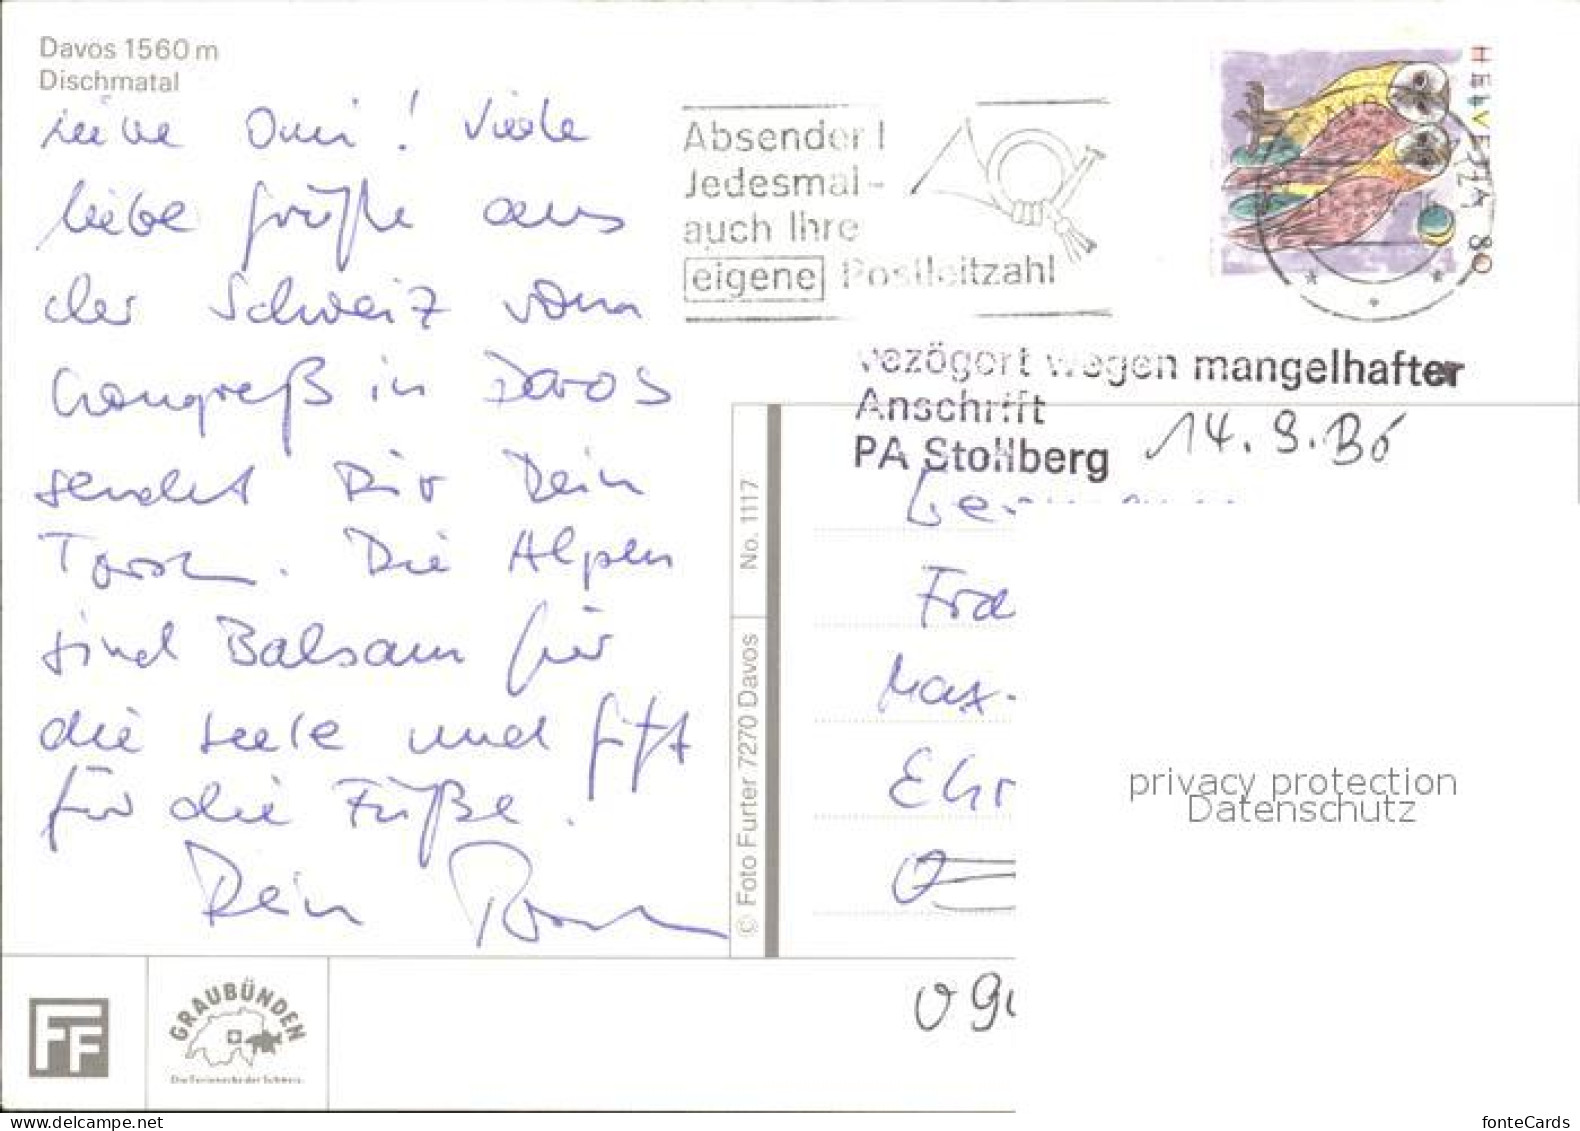 Davos 1560 m
Dischmatal
Liebe Omi! Viele
liebe Grüße aus
der Schweiz vom
Kongreß in Davos
sendet Dir Dein
Torsten. Die Alpen
sind Balsam für
die Seele und Gift
für die Füße.
Dein Torsten
Absender!
Jedesmal-
auch Ihre
eigene Postleitzahl
HELVETIA 80
vezögert wegen mangelhafter
Anschrift
PA Stollberg 14.9.
Fra
Max-
Ehr
No. 1117
© Foto Furter 7270 Davos
FF
GRAUBÜNDEN
Die Ferienecke der Schweiz.
09
privacy protection
Datenschutz
www.delcampe.net
fonteCards